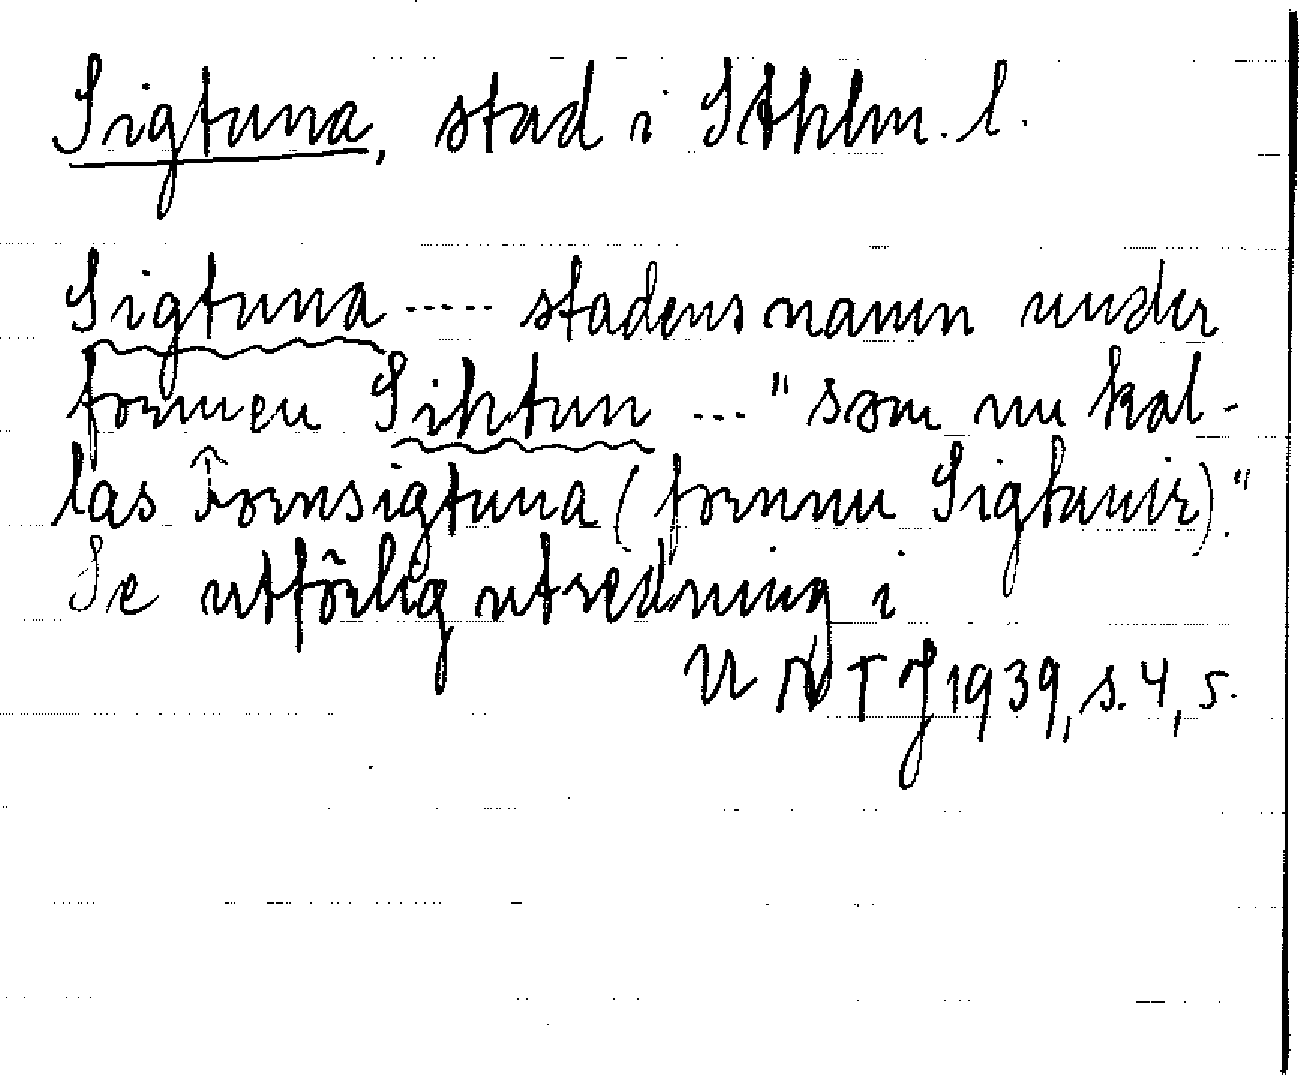 Sigtuna, stad i Sthlm. l.
Sigtuna ..... stadens namn under
formen Sihtun ... "som nu kal-
las Fornsigtuna (fornnu Sigtunir)."
Se utförlig utredning i
U N T J 1939, s. 4, 5.